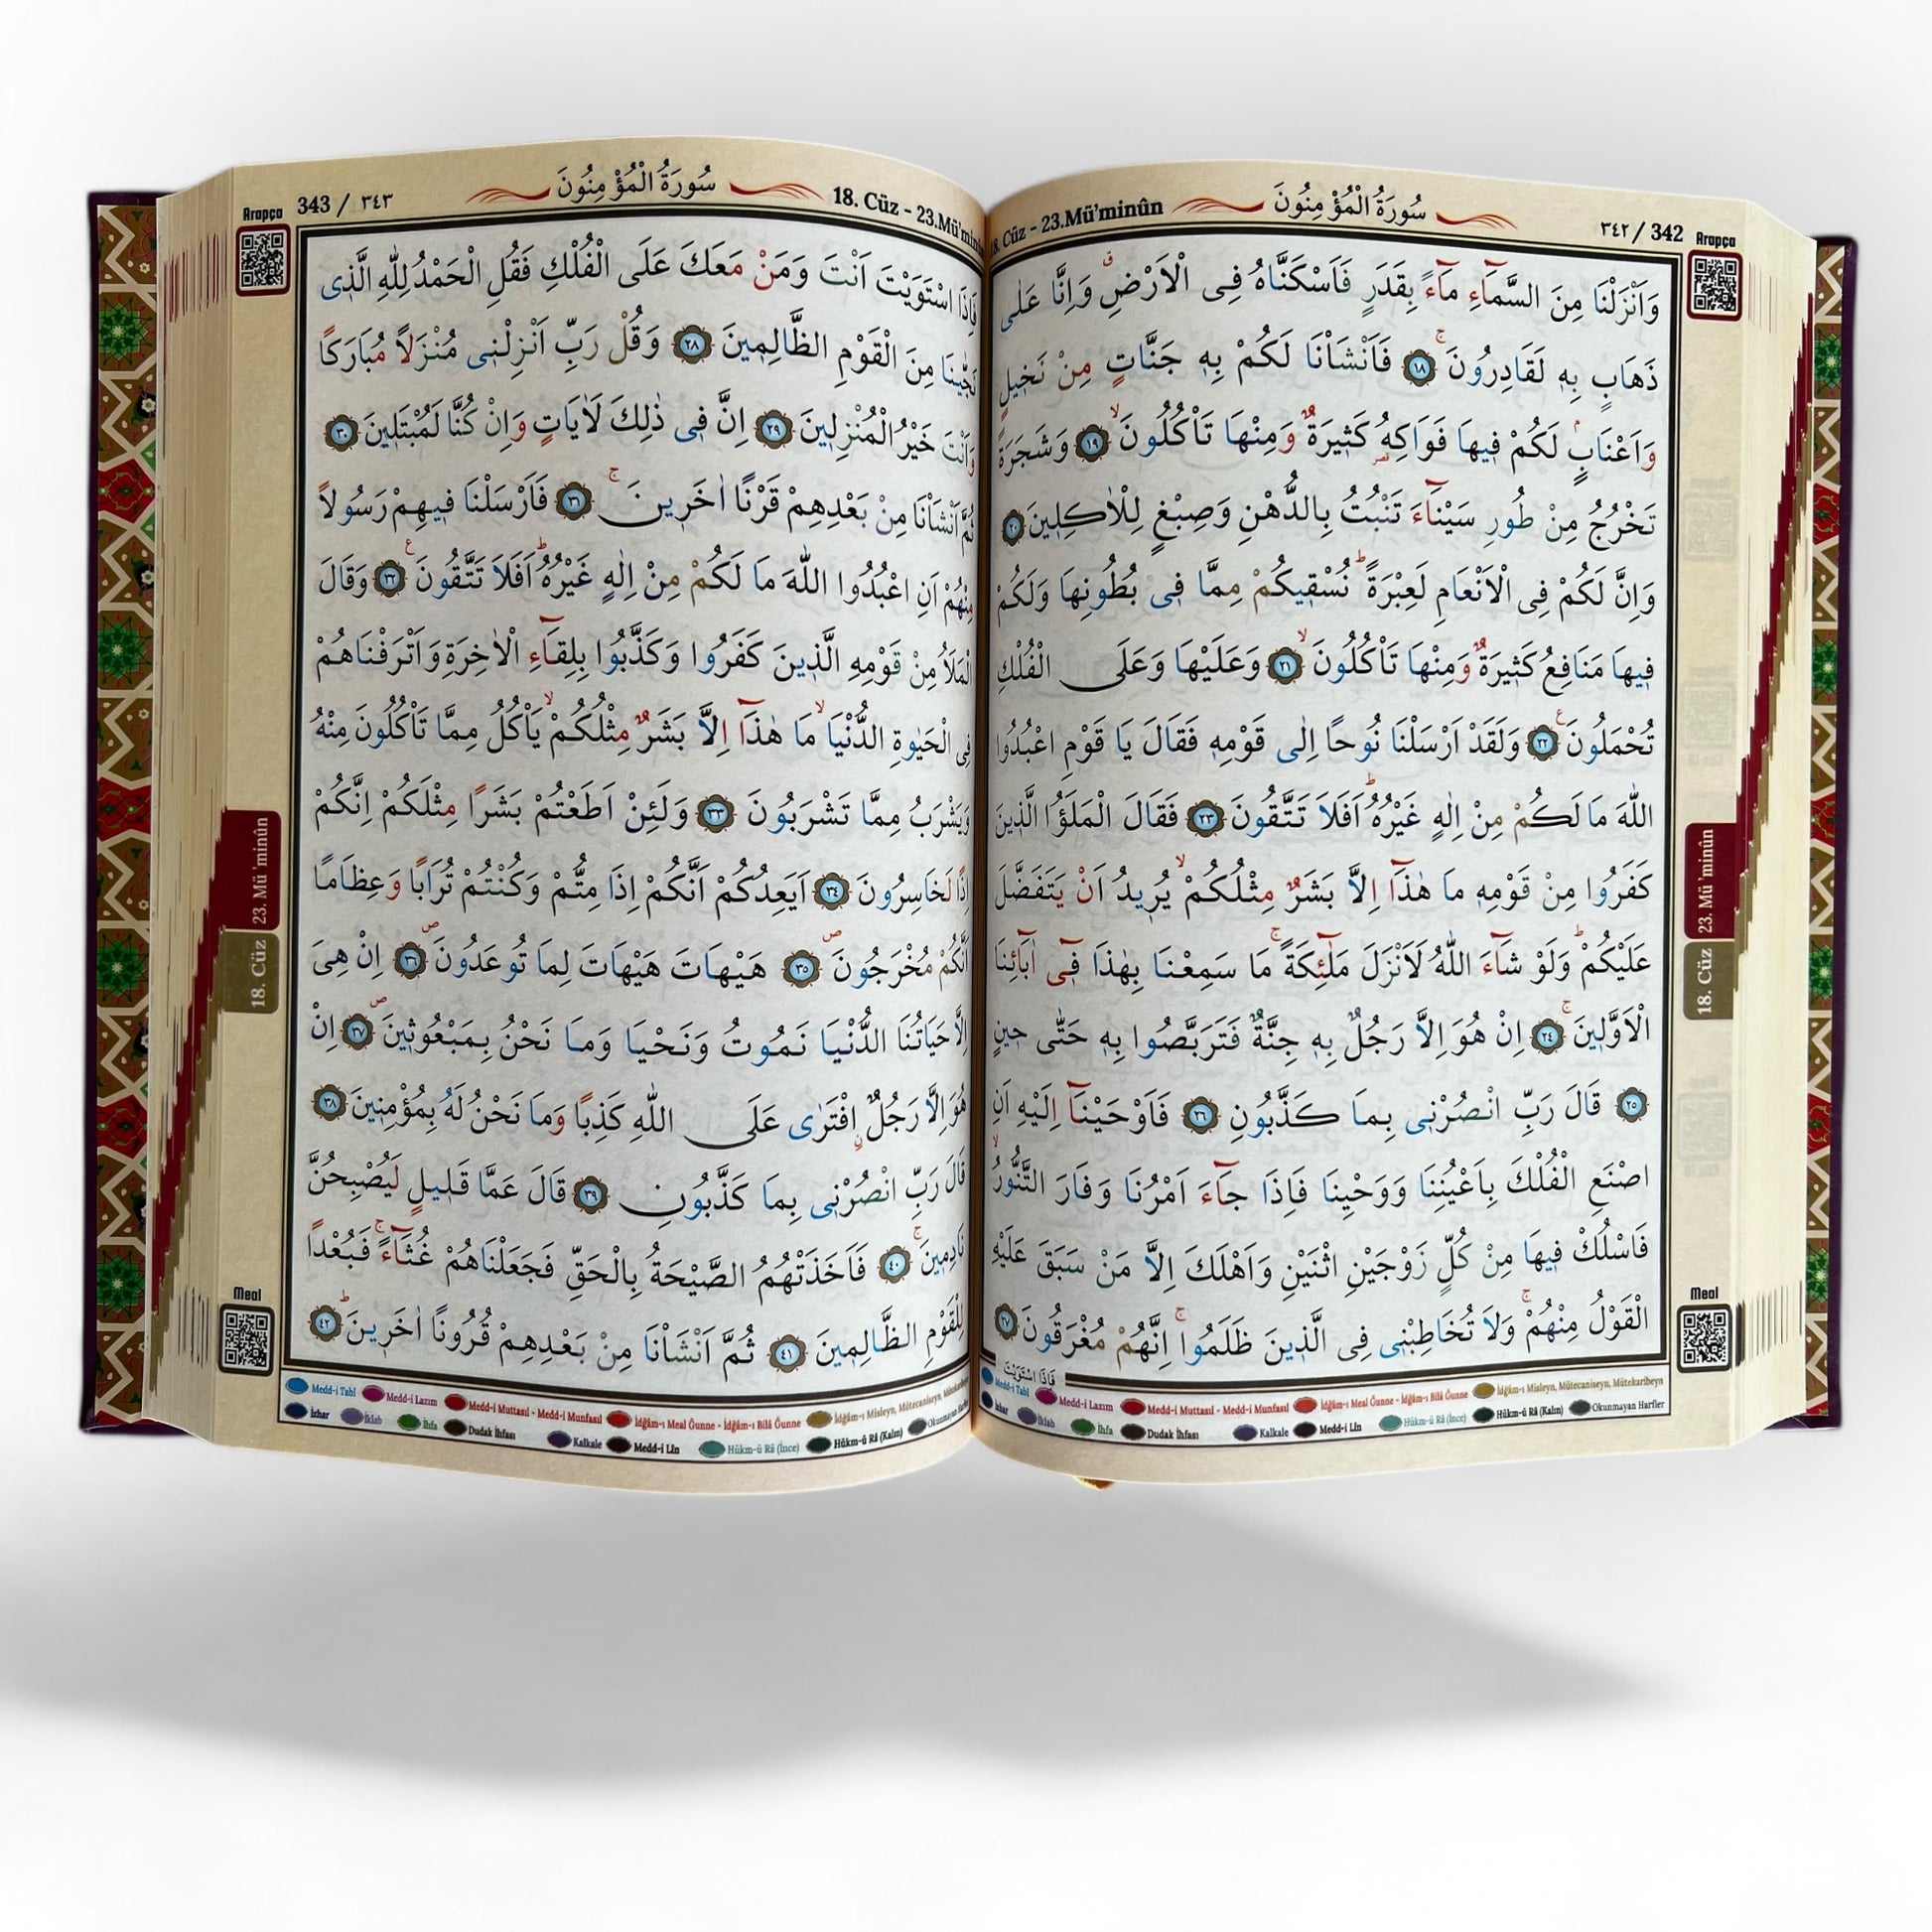 سُورَةُ الْمُؤْمِنُونَ
18. Cüz - 23.Mü'minûn
٣٤٢ / 342
Arapça
وَاَنْزَلْنَا مِنَ السَّمَٓاءِ مَٓاءً بِقَدَرٍ فَاَسْكَنَّاهُ فِى الْاَرْضِۗ وَاِنَّا عَلٰى
ذَهَابٍ بِه۪ لَقَادِرُونَۚ ﴿١٨﴾ فَاَنْشَاْنَا لَكُمْ بِه۪ جَنَّاتٍ مِنْ نَخ۪يلٍ
وَاَعْنَابٍۢ لَكُمْ ف۪يهَا فَوَاكِهُ كَث۪يرَةٌ وَمِنْهَا تَأْكُلُونَۙ ﴿١٩﴾ وَشَجَرَةً
تَخْرُجُ مِنْ طُورِ سَيْنَٓاءَ تَنْبُتُ بِالدُّهْنِ وَصِبْغٍ لِلْاٰكِل۪ينَ ﴿٢٠﴾
وَاِنَّ لَكُمْ فِى الْاَنْعَامِ لَعِبْرَةًۜ نُسْق۪يكُمْ مِمَّا ف۪ى بُطُونِهَا وَلَكُمْ
ف۪يهَا مَنَافِعُ كَث۪يرَةٌ وَمِنْهَا تَأْكُلُونَۙ ﴿٢١﴾ وَعَلَيْهَا وَعَلَى الْفُلْكِ
تُحْمَلُونَ۟ ﴿٢٢﴾ وَلَقَدْ اَرْسَلْنَا نُوحًا اِلٰى قَوْمِه۪ فَقَالَ يَا قَوْمِ اعْبُدُوا
اللّٰهَ مَا لَكُمْ مِنْ اِلٰهٍ غَيْرُهُۜ اَفَلَا تَتَّقُونَ ﴿٢٣﴾ فَقَالَ الْمَلَؤُا الَّذ۪ينَ
كَفَرُوا مِنْ قَوْمِه۪ مَا هٰذَٓا اِلَّا بَشَرٌ مِثْلُكُمْۙ يُر۪يدُ اَنْ يَتَفَضَّلَ
عَلَيْكُمْۜ وَلَوْ شَٓاءَ اللّٰهُ لَاَنْزَلَ مَلٰٓئِكَةًۚ مَا سَمِعْنَا بِهٰذَا ف۪ٓى اٰبَٓائِنَا
الْاَوَّل۪ينَۚ ﴿٢٤﴾ اِنْ هُوَ اِلَّا رَجُلٌ بِه۪ جِنَّةٌ فَتَرَبَّصُوا بِه۪ حَتّٰى ح۪ينٍ
﴿٢٥﴾ قَالَ رَبِّ انْصُرْن۪ى بِمَا كَذَّبُونِ ﴿٢٦﴾ فَاَوْحَيْنَٓا اِلَيْهِ اَنِ
اصْنَعِ الْفُلْكَ بِاَعْيُنِنَا وَوَحْيِنَا فَاِذَا جَٓاءَ اَمْرُنَا وَفَارَ التَّنُّورُۙ
فَاسْلُكْ ف۪يهَا مِنْ كُلٍّ زَوْجَيْنِ اثْنَيْنِ وَاَهْلَكَ اِلَّا مَنْ سَبَقَ عَلَيْهِ
الْقَوْلُ مِنْهُمْۚ وَلَا تُخَاطِبْن۪ى فِى الَّذ۪ينَ ظَلَمُواۚ اِنَّهُمْ مُغْرَقُونَ ﴿٢٧﴾
فَاِذَا اسْتَوَيْتَ
23. Mü'minûn
18. Cüz
Meal
Medd-i Tabî Medd-i Lazım Medd-i Muttasıl - Medd-i Munfasıl İdğâm-ı Meal Ğunne - İdğâm-ı Bilâ Ğunne İdğâm-ı Misleyn, Mütecaniseyn, Mütekaribeyn
İzhar İklab İhfa Dudak İhfası Kalkale Medd-i Lîn Hükm-ü Râ (İnce) Hükm-ü Râ (Kalın) Okunmayan Harfler
سُورَةُ الْمُؤْمِنُونَ
18. Cüz - 23.Mü'minûn
343 / ٣٤٣
Arapça
فَاِذَا اسْتَوَيْتَ اَنْتَ وَمَنْ مَعَكَ عَلَى الْفُلْكِ فَقُلِ الْحَمْدُ لِلّٰهِ الَّذ۪ى
نَجّٰينَا مِنَ الْقَوْمِ الظَّالِم۪ينَ ﴿٢٨﴾ وَقُلْ رَبِّ اَنْزِلْن۪ى مُنْزَلًا مُبَارَكًا
وَاَنْتَ خَيْرُ الْمُنْزِل۪ينَ ﴿٢٩﴾ اِنَّ ف۪ى ذٰلِكَ لَاٰيَاتٍ وَاِنْ كُنَّا لَمُبْتَل۪ينَ ﴿٣٠﴾
ثُمَّ اَنْشَاْنَا مِنْ بَعْدِهِمْ قَرْنًا اٰخَر۪ينَۚ ﴿٣١﴾ فَاَرْسَلْنَا ف۪يهِمْ رَسُولًا
مِنْهُمْ اَنِ اعْبُدُوا اللّٰهَ مَا لَكُمْ مِنْ اِلٰهٍ غَيْرُهُۜ اَفَلَا تَتَّقُونَ۟ ﴿٣٢﴾ وَقَالَ
الْمَلَاُ مِنْ قَوْمِهِ الَّذ۪ينَ كَفَرُوا وَكَذَّبُوا بِلِقَٓاءِ الْاٰخِرَةِ وَاَتْرَفْنَاهُمْ
فِى الْحَيٰوةِ الدُّنْيَاۙ مَا هٰذَٓا اِلَّا بَشَرٌ مِثْلُكُمْۙ يَأْكُلُ مِمَّا تَأْكُلُونَ مِنْهُ
وَيَشْرَبُ مِمَّا تَشْرَبُونَ ﴿٣٣﴾ وَلَئِنْ اَطَعْتُمْ بَشَرًا مِثْلَكُمْ اِنَّكُمْ
اِذًا لَخَاسِرُونَ ﴿٣٤﴾ اَيَعِدُكُمْ اَنَّكُمْ اِذَا مِتُّمْ وَكُنْتُمْ تُرَابًا وَعِظَامًا
اَنَّكُمْ مُخْرَجُونَۖ ﴿٣٥﴾ هَيْهَاتَ هَيْهَاتَ لِمَا تُوعَدُونَۖ ﴿٣٦﴾ اِنْ هِىَ
اِلَّا حَيَاتُنَا الدُّنْيَا نَمُوتُ وَنَحْيَا وَمَا نَحْنُ بِمَبْعُوث۪ينَۖ ﴿٣٧﴾ اِنْ
هُوَ اِلَّا رَجُلٌۨ افْتَرٰى عَلَى اللّٰهِ كَذِبًا وَمَا نَحْنُ لَهُ بِمُؤْمِن۪ينَ ﴿٣٨﴾
قَالَ رَبِّ انْصُرْن۪ى بِمَا كَذَّبُونِ ﴿٣٩﴾ قَالَ عَمَّا قَل۪يلٍ لَيُصْبِحُنَّ
نَادِم۪ينَۚ ﴿٤٠﴾ فَاَخَذَتْهُمُ الصَّيْحَةُ بِالْحَقِّ فَجَعَلْنَاهُمْ غُثَٓاءًۚ فَبُعْدًا
لِلْقَوْمِ الظَّالِم۪ينَ ﴿٤١﴾ ثُمَّ اَنْشَاْنَا مِنْ بَعْدِهِمْ قُرُونًا اٰخَر۪ينَۜ ﴿٤٢﴾
23. Mü'minûn
18. Cüz
Meal
Medd-i Tabî Medd-i Lazım Medd-i Muttasıl - Medd-i Munfasıl İdğâm-ı Meal Ğunne - İdğâm-ı Bilâ Ğunne İdğâm-ı Misleyn, Mütecaniseyn, Mütekaribeyn
İzhar İklab İhfa Dudak İhfası Kalkale Medd-i Lîn Hükm-ü Râ (İnce) Hükm-ü Râ (Kalın) Okunmayan Harfler